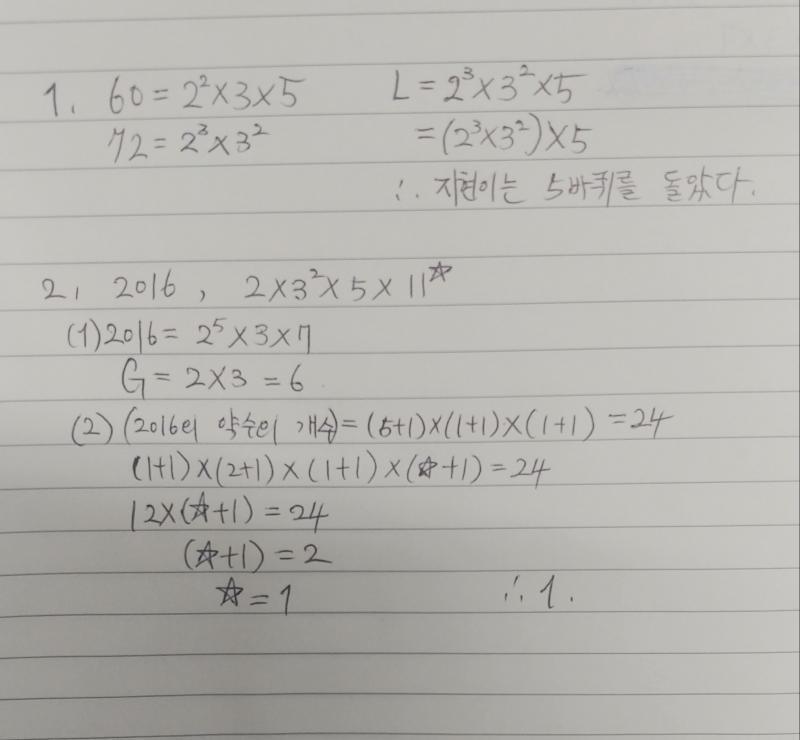 1. 60 = 2²×3×5
72 = 2³×3²
L = 2³×3²×5
= (2³×3²)×5
∴ 지현이는 5바퀴를 돌았다.
2, 2016, 2×3²×5×11^☆
(1) 2016 = 2⁵×3×7
G = 2×3 = 6
(2) (2016의 약수의 개수) = (5+1)×(1+1)×(1+1) = 24
(1+1)×(2+1)×(1+1)×(☆+1) = 24
12×(☆+1) = 24
(☆+1) = 2
☆ = 1
∴ 1.